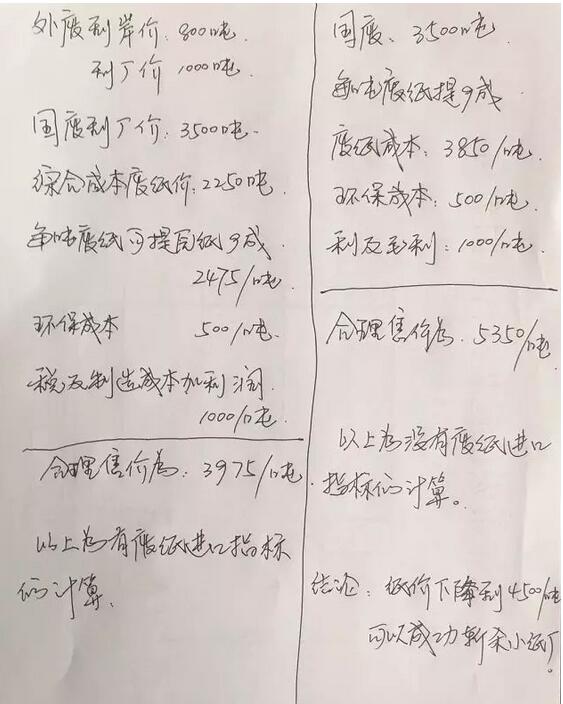 外废到岸价:800吨.
到厂价 1000吨.
国废到厂价:3500吨.
综合成本废纸价:2250吨.
每吨废纸可提瓦纸9成.
2475/吨.
环保成本 500/吨.
税及制造成本加利润.
1000/吨.
合理售价为:3975/吨.
以上为有废纸进口指标
的计算.
国废、3500吨.
每吨废纸提9成
废纸成本:3850/吨.
环保成本:500/吨.
利及毛利:1000/吨.
合理售价为.5350/吨.
以上为没有废纸进口
指标的计算。
结论:纸价下降到4500/吨
可以成功斩杀小纸厂.